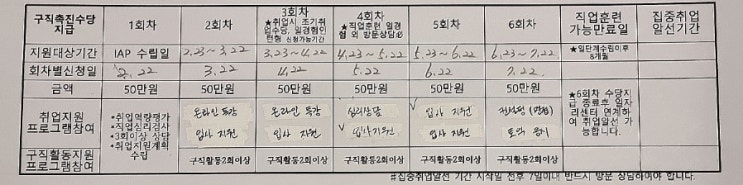 구직촉진수당 지급 1회차 2회차 3회차 ★취업시 조기취업수당, 일경험인 신청가능기간 4회차 ★직업훈련 일경험 외 방문상담 5회차 6회차 직업훈련 가능만료일 집중취업 알선기간
지원대상기간 IAP 수립일 2.23~3.22 3.23~4.22 4.23~5.22 5.23~6.22 6.23~7.22 ★일단계수립이후 6개월
회차별신청일 2.22 3.22 4.22 5.22 6.22 7.22
금액 50만원 50만원 50만원 50만원 50만원 50만원
취업지원 프로그램참여
•취업역량평가
•직업심리검사
•3회이상 상담
•취업지원계획 수립
온라인 특강
입사 지원
온라인 특강
입사 지원
심리상담
✓ 입사지원
✓ 입사 지원
입사 지원
★6회차 수당지급 종료후 일자리센터 연계하여 취업알선 가능합니다.
구직활동지원 프로그램참여 구직활동2회이상 구직활동2회이상 구직활동2회이상 구직활동2회이상 구직활동2회이상
#집중취업알선 기간 시작일 전후 7일이내 반드시 방문 상담하여야 합니다.